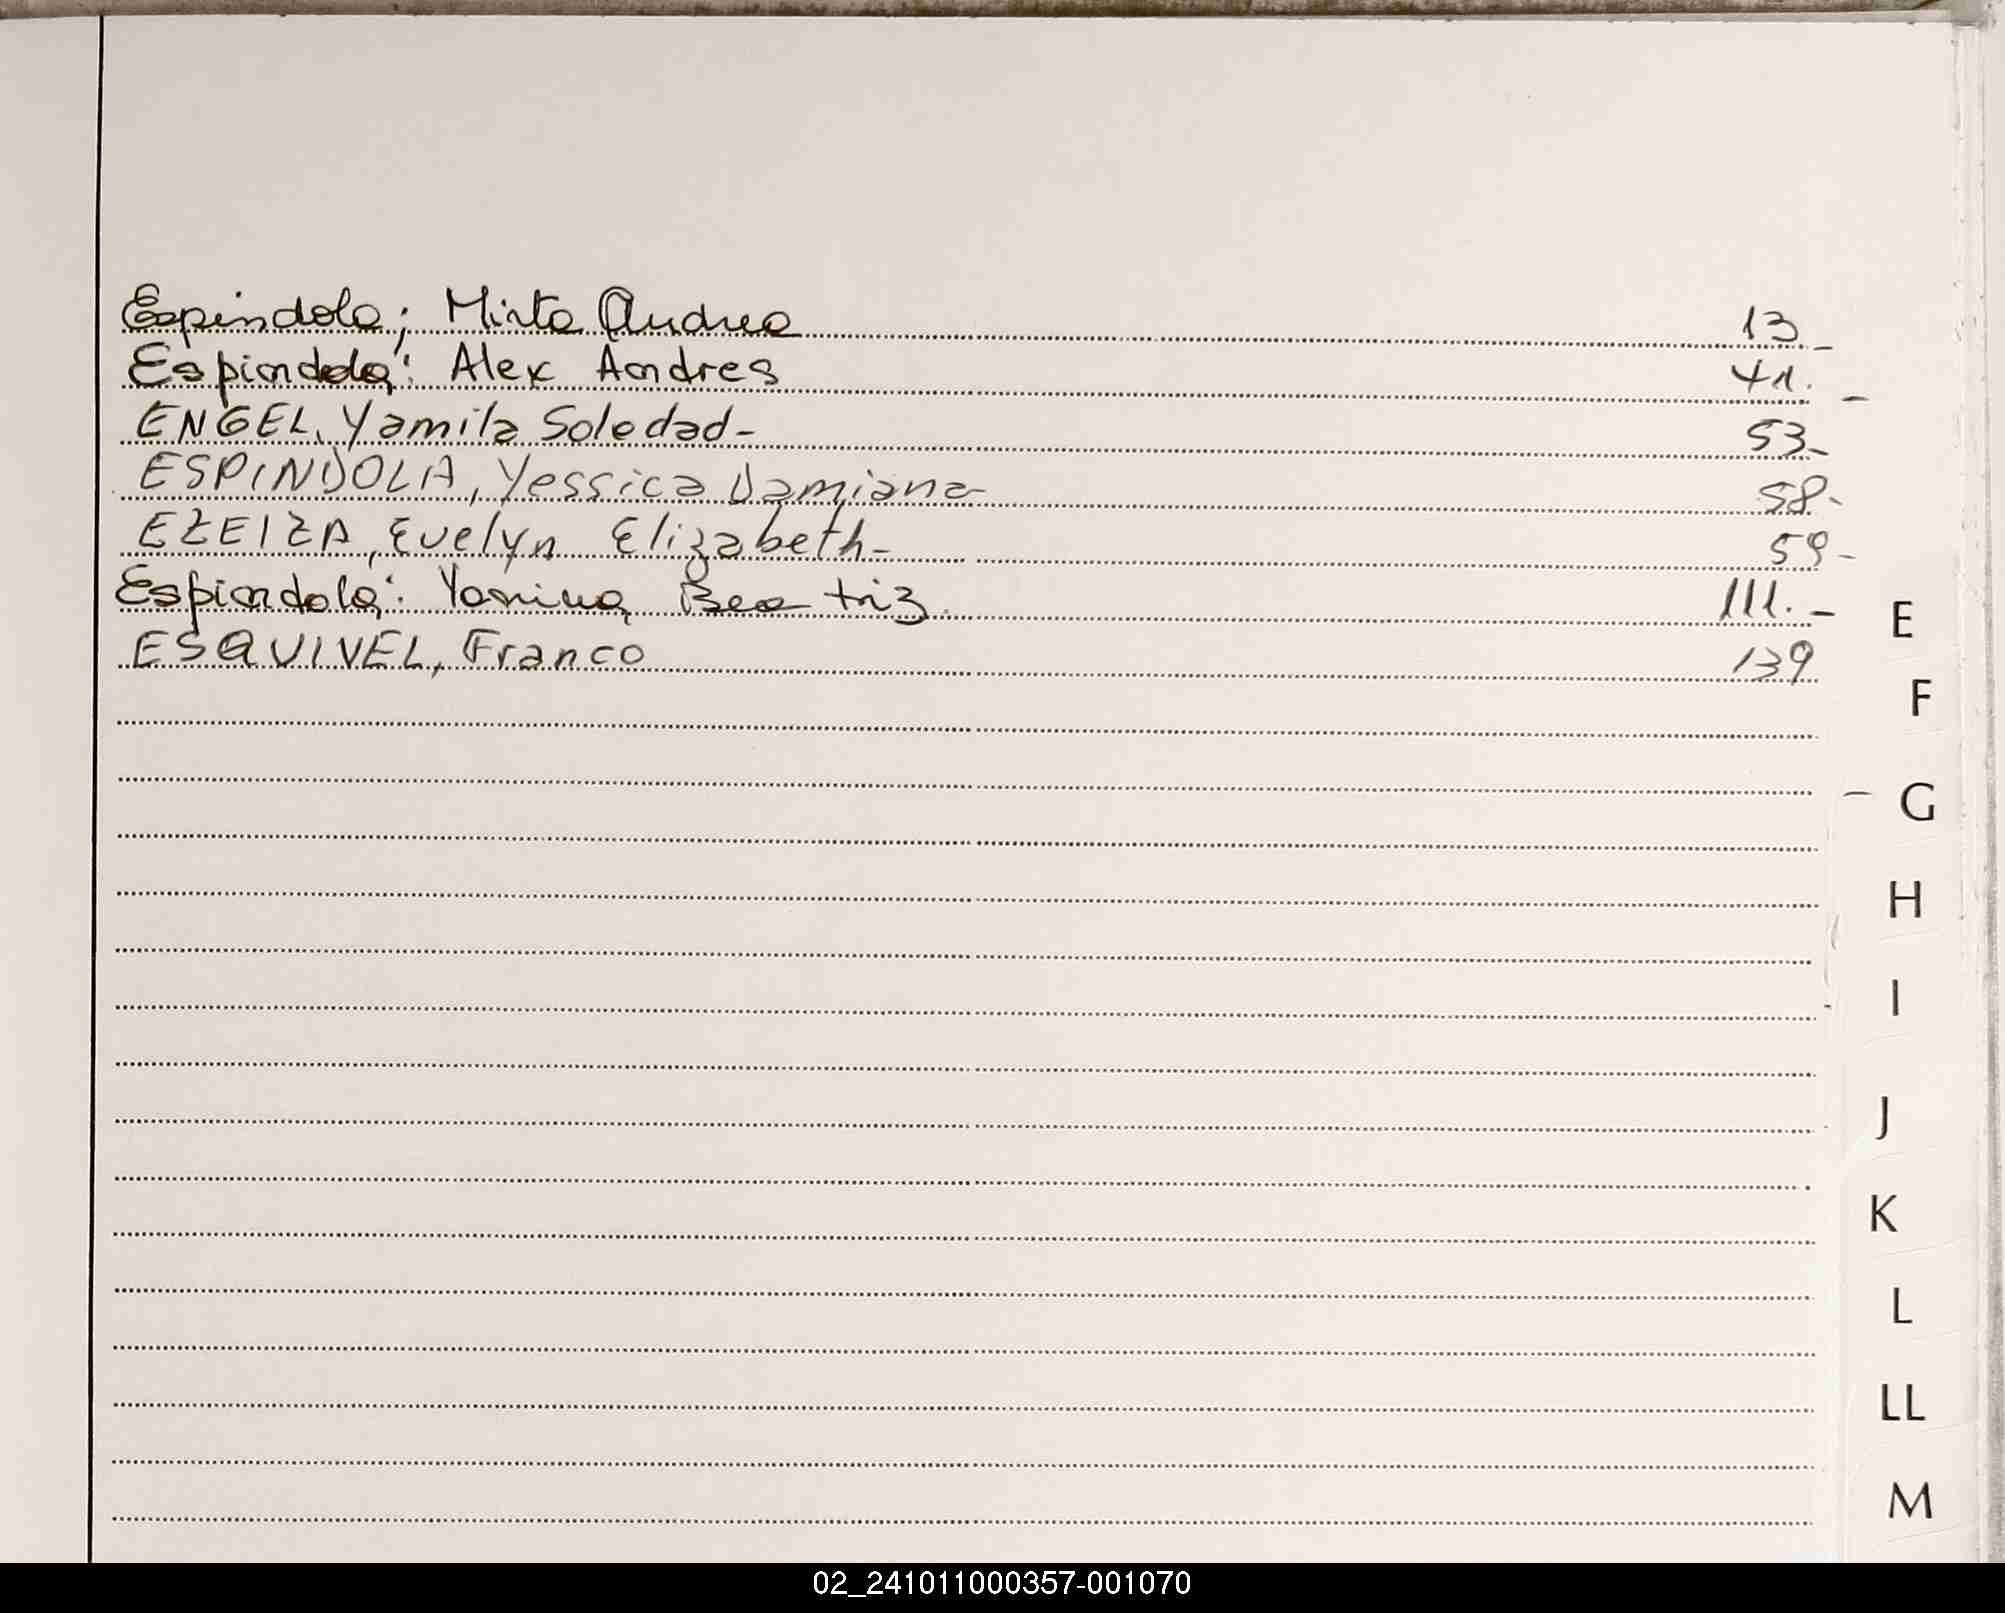 Espindola; Mirta Andrea 13.-
Espindola: Alex Andres 41.-
ENGEL, Yamila Soledad- 53.-
ESPINDOLA, Yessica Damiana 58.-
EZEIZA, Evelyn Elizabeth- 59-
Espindola: Yanina Beatriz. 111.-
ESQUIVEL, Franco 139
E
F
G
H
I
J
K
L
LL
M
02_241011000357-001070